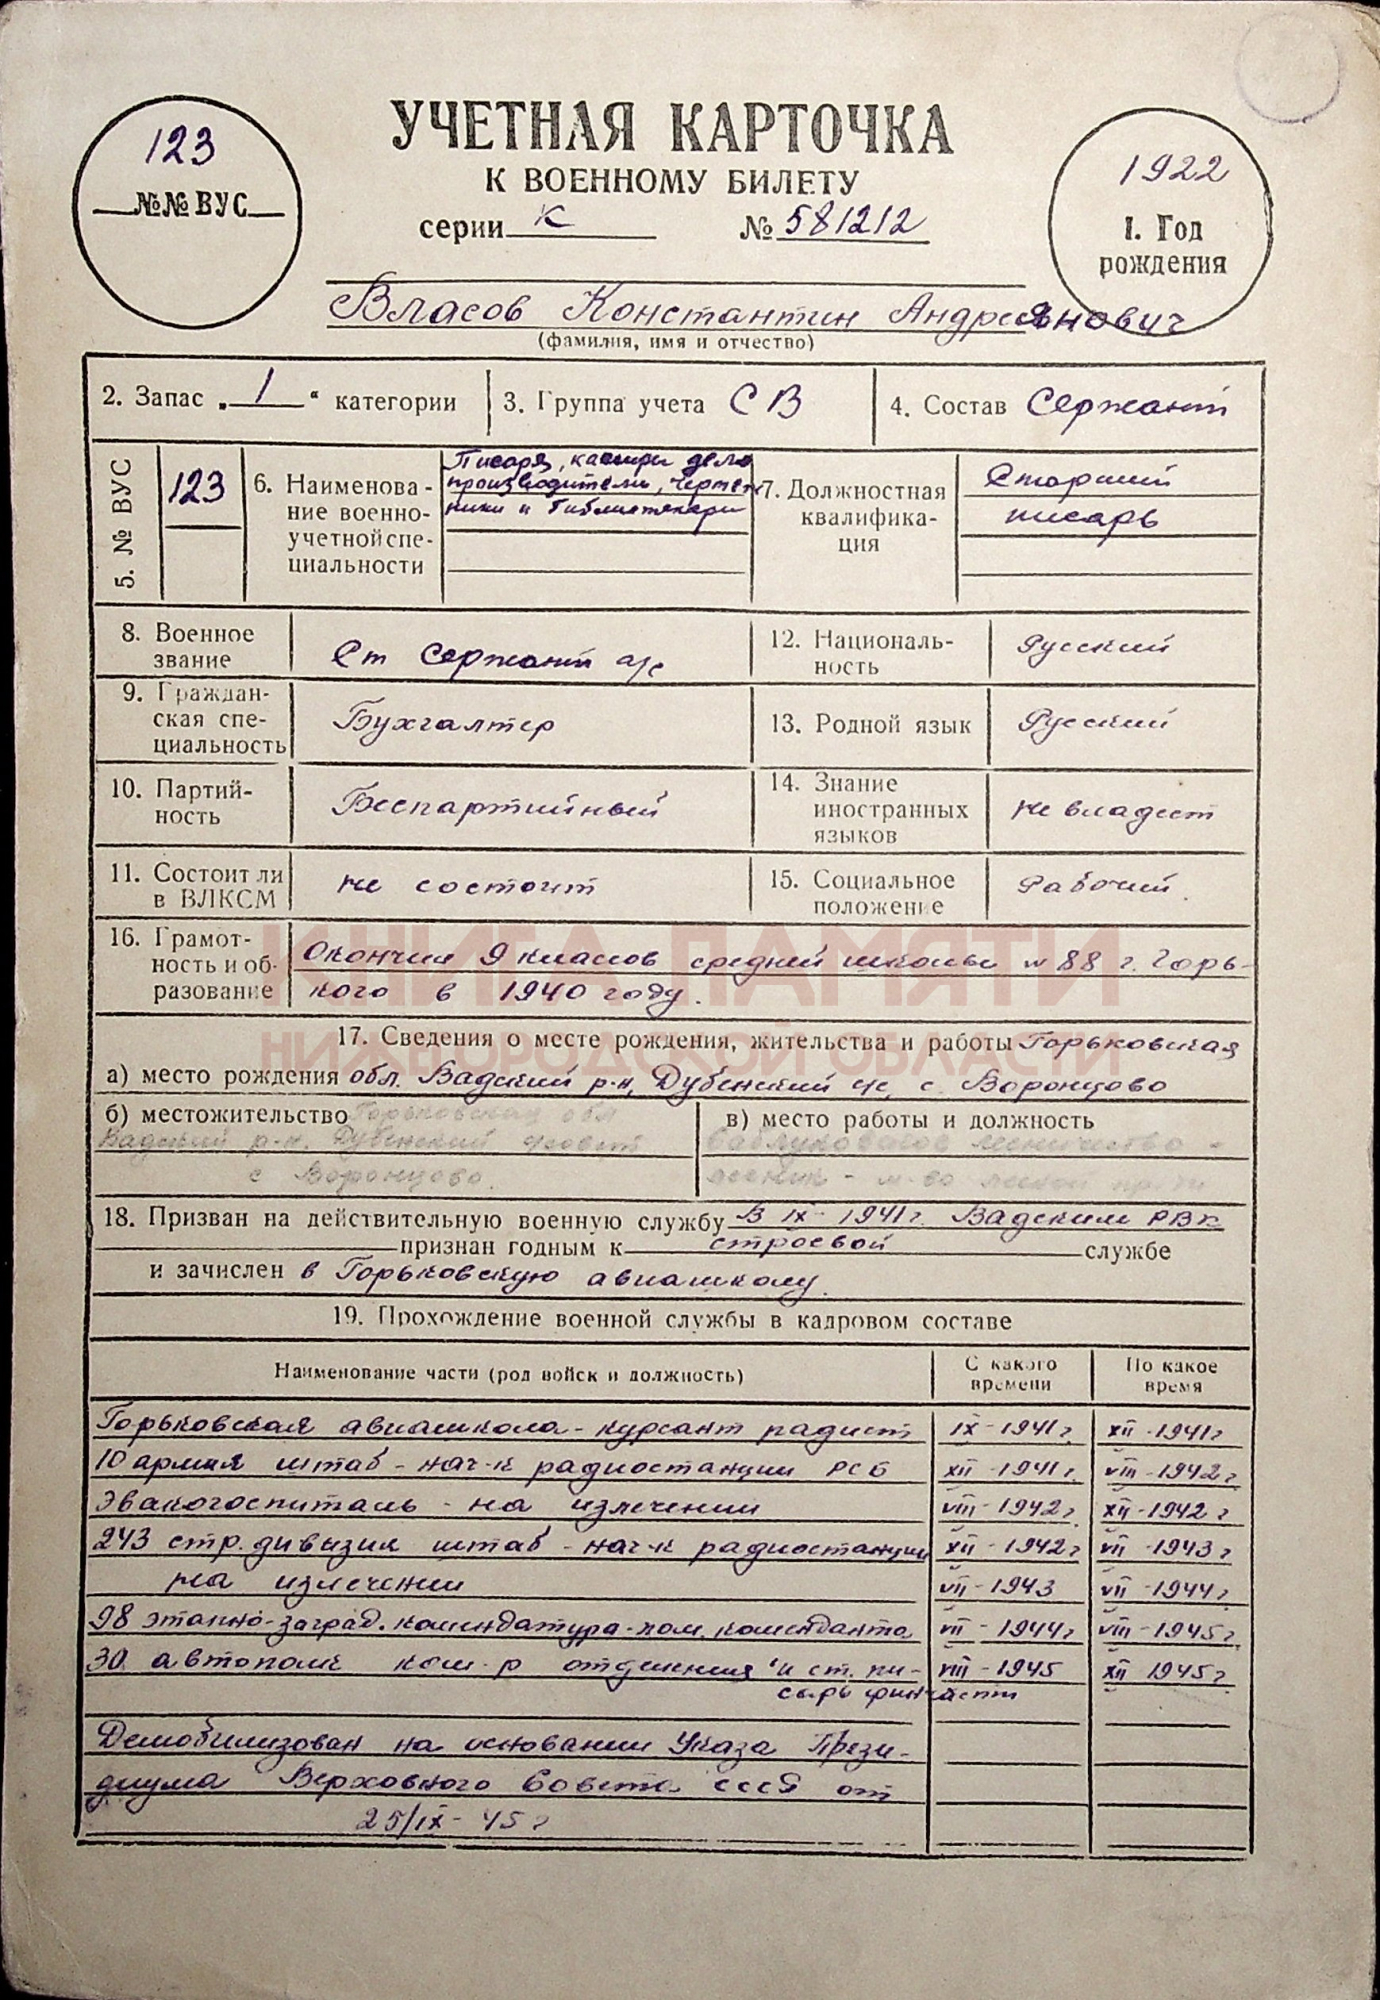 УЧЕТНАЯ КАРТОЧКА
К ВОЕННОМУ БИЛЕТУ
серии К № 581212
123
№№ ВУС
1922
1. Год
рождения
Власов Константин Андреянович
(фамилия, имя и отчество)
2. Запас „1“ категории
3. Группа учета СВ
4. Состав Сержант
5. № ВУС
123
6. Наименова-
ние военно-
учетной спе-
циальности
Писаря, кассиры дело
производители, чертеж
ники и библиотекари
7. Должностная
квалифика-
ция
Старший
писарь
8. Военное
звание
Ст Сержант а/с
12. Националь-
ность
Русский
9. Граждан-
ская спе-
циальность
Бухгалтер
13. Родной язык
Русский
10. Партий-
ность
Беспартийный
14. Знание
иностранных
языков
не владеет
11. Состоит ли
в ВЛКСМ
не состоит
15. Социальное
положение
Рабочий
16. Грамот-
ность и об-
разование
Окончил 9 классов средней школы № 88 г. Горь-
кого в 1940 году.
КНИГА ПАМЯТИ
НИЖЕГОРОДСКОЙ ОБЛАСТИ
17. Сведения о месте рождения, жительства и работы Горьковская
а) место рождения обл. Вадский р-н, Дубенский с/с, с. Воронцово
б) местожительство Горьковская обл
Вадский р-н. Дубенский с/совет
с Воронцово.
в) место работы и должность
лесничество -
лесник -
18. Призван на действительную военную службу В IX-1941г. Вадским РВК
признан годным к строевой службе
и зачислен в Горьковскую авиашколу.
19. Прохождение военной службы в кадровом составе
Наименование части (род войск и должность)
С какого
времени
По какое
время
Горьковская авиашкола - курсант радист IX-1941г. XII-1941г
10 армия штаб - нач-к радиостанции РСБ XII-1941г. VIII-1942г.
Эвакогоспиталь - на излечении VIII-1942г. XII-1942г
243 стр. дивизия штаб - нач-к радиостанции XII-1942г VII-1943г
на излечении VII-1943 VII-1944г
98 этапно-заград. комендатура - пом. коменданта VII-1944г VIII-1945г.
30 автополк ком-р отделения и ст. пи- VIII-1945 XII 1945г.
сарь финчасти
Демобилизован на основании Указа Прези-
диума Верховного Совета СССР от
25/IX-45г